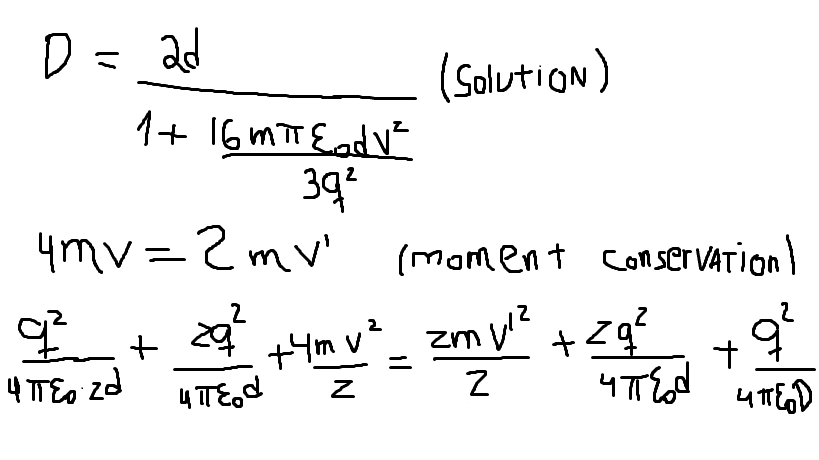 D = 2d / (1 + 16mπε₀dv² / 3q²) (Solution)
4mv = 2mv' (moment conservation)
q² / 4πε₀·2d + 2q² / 4πε₀d + 4mv² / 2 = 2mv'² / 2 + 2q² / 4πε₀d + q² / 4πε₀D